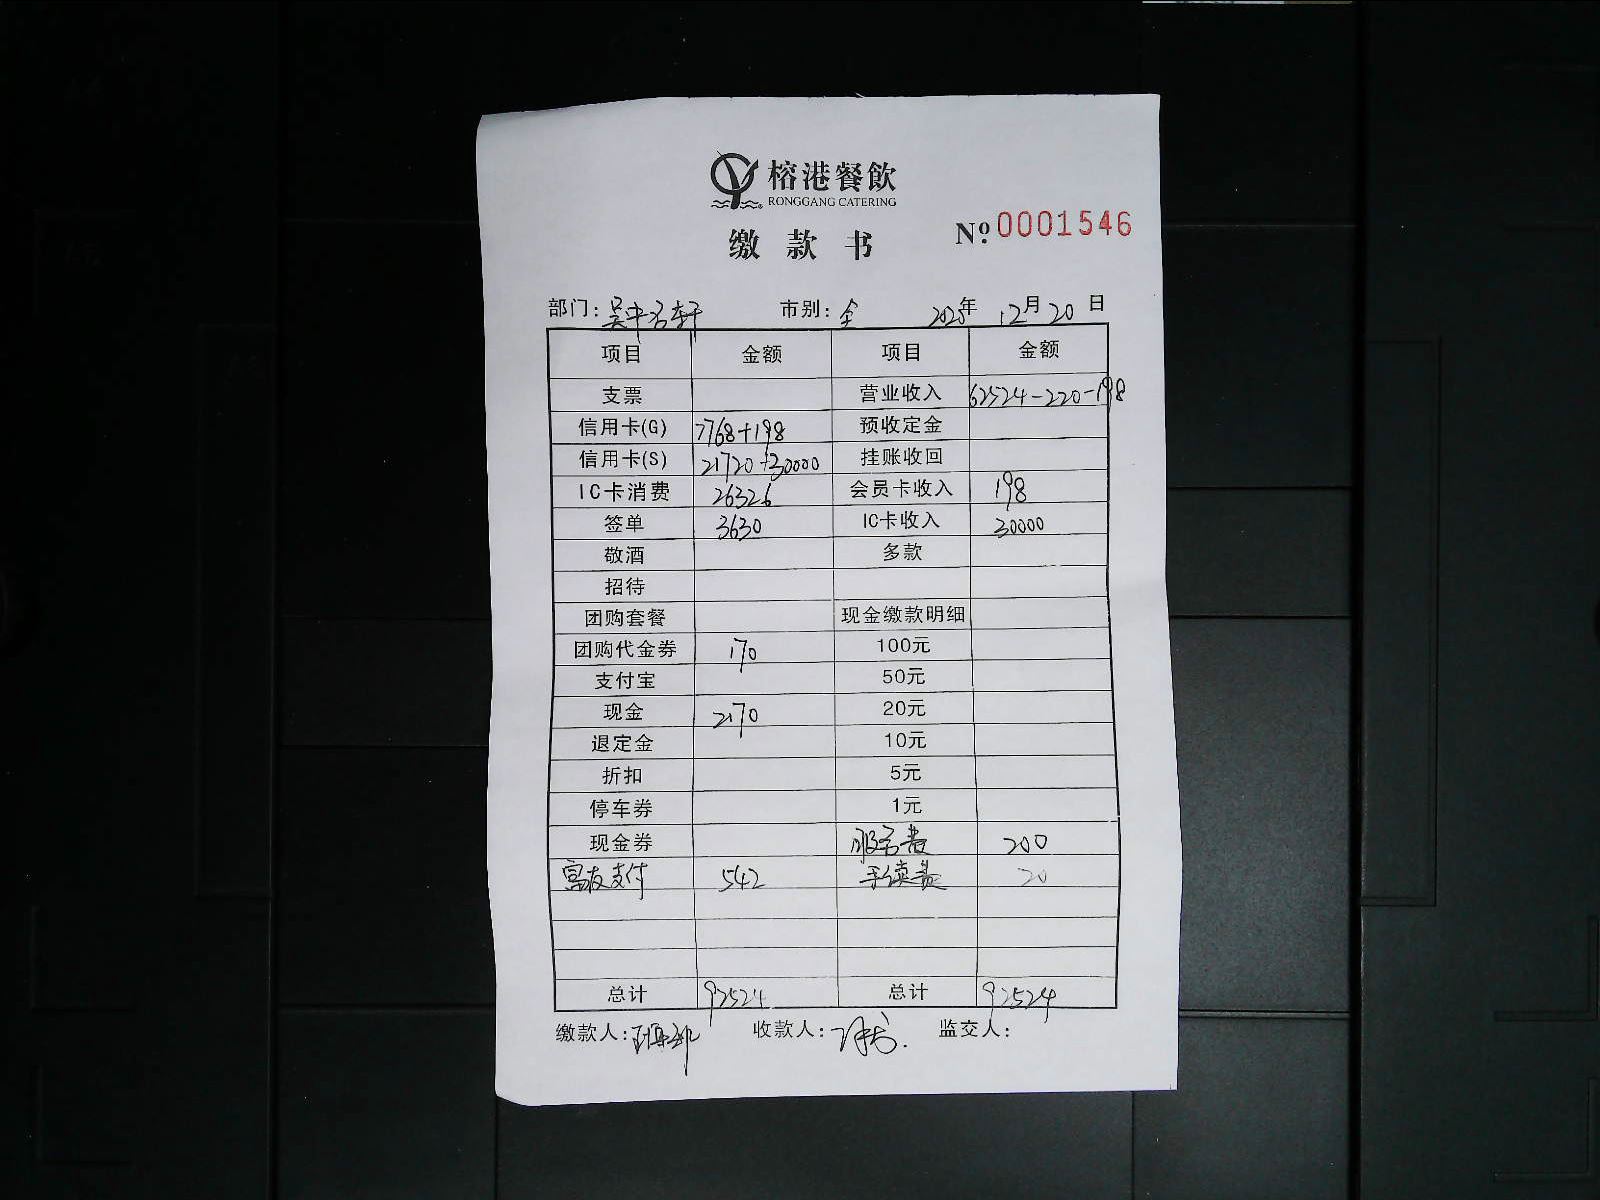 榕港餐飲
RONGGANG CATERING
缴款书 Nº 0001546
部门: 吴中名轩 市别: 全 2025年 12月 20日
项目 金额 项目 金额
支票 营业收入 62524-220-198
信用卡(G) 7768+198 预收定金
信用卡(S) 21720+30000 挂账收回
IC卡消费 26326 会员卡收入 198
签单 3630 IC卡收入 30000
敬酒 多款
招待
团购套餐 现金缴款明细
团购代金券 170 100元
支付宝 50元
现金 2170 20元
退定金 10元
折扣 5元
停车券 1元
现金券 服务费 200
富友支付 542 手续费 20
总计 92524 总计 92524
缴款人: 收款人: 监交人: